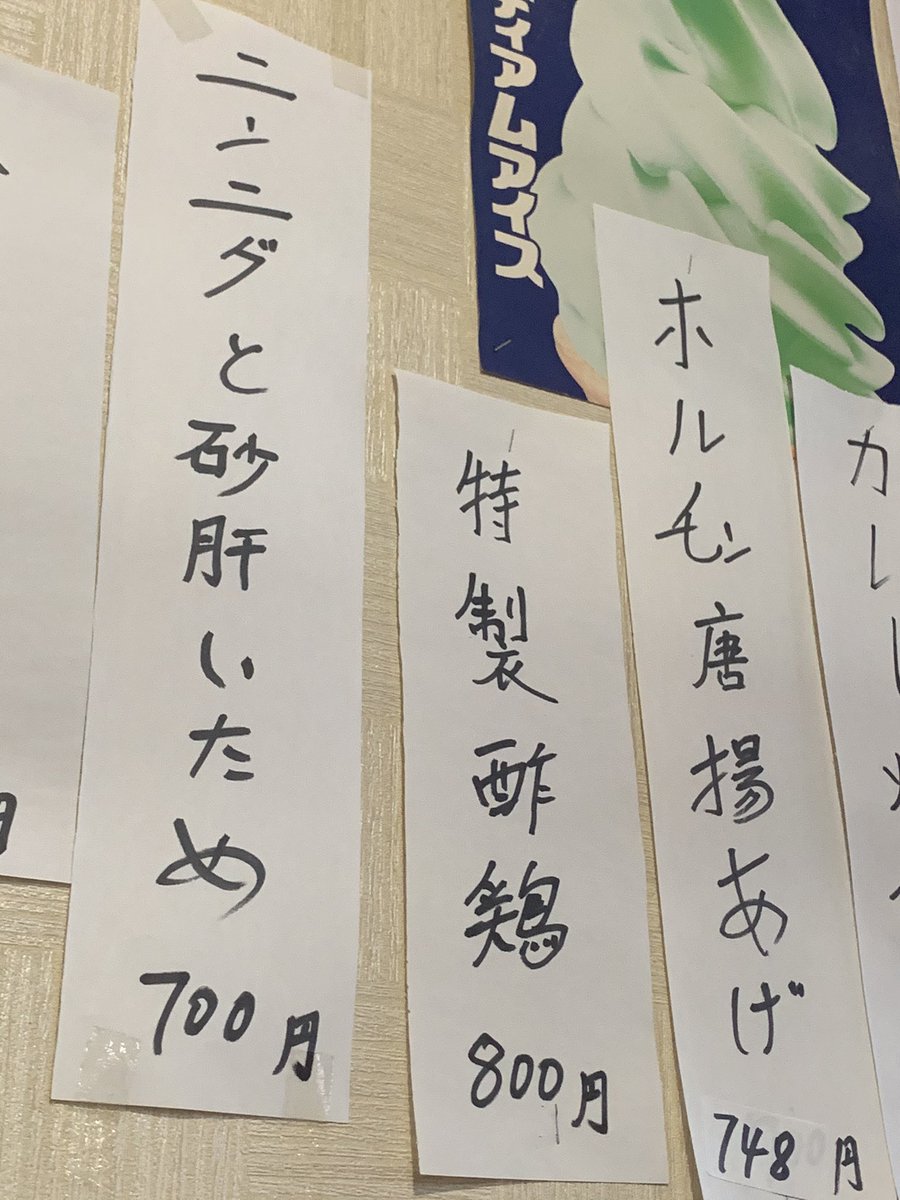 カレー
ホルモン唐揚あげ
748円
ィアムアイス
特製酢鶏
800円
ニンニダと砂肝いため
700円
円